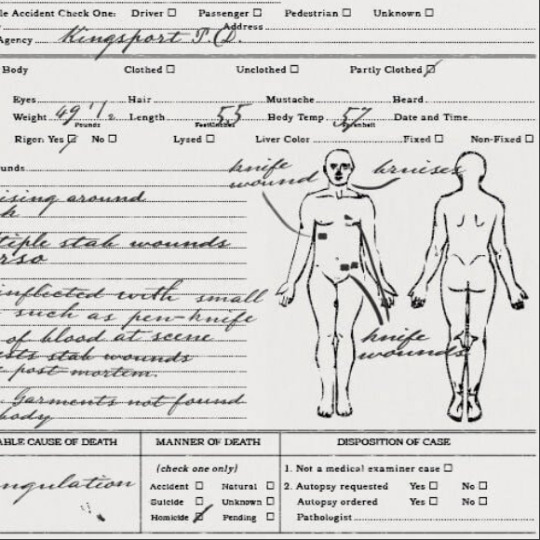 le Accident Check One: Driver ☐ Passenger ☐ Pedestrian ☐ Unknown ☐
Address
Agency Kingsport P.D.
Body Clothed ☐ Unclothed ☐ Partly Clothed ☑
Eyes Hair Mustache Beard
Weight 49 1/2 Pounds Length 55 Body Temp 57 Date and Time
Rigor: Yes ☑ No ☐ Lysed ☐ Liver Color Fixed ☐ Non-Fixed ☐
ounds
knife wound
bruises
ising around
k
tiple stab wounds
rso
inflicted with small
such as pen-knife
of blood at scene
sts stab wounds
post mortem.
garments not found
body
knife wounds
ABLE CAUSE OF DEATH
ngulation
MANNER OF DEATH
(check one only)
Accident ☐ Natural ☐
Suicide ☐ Unknown ☐
Homicide ☑ Pending ☐
DISPOSITION OF CASE
1. Not a medical examiner case ☐
2. Autopsy requested Yes ☐ No ☐
Autopsy ordered Yes ☐ No ☐
Pathologist